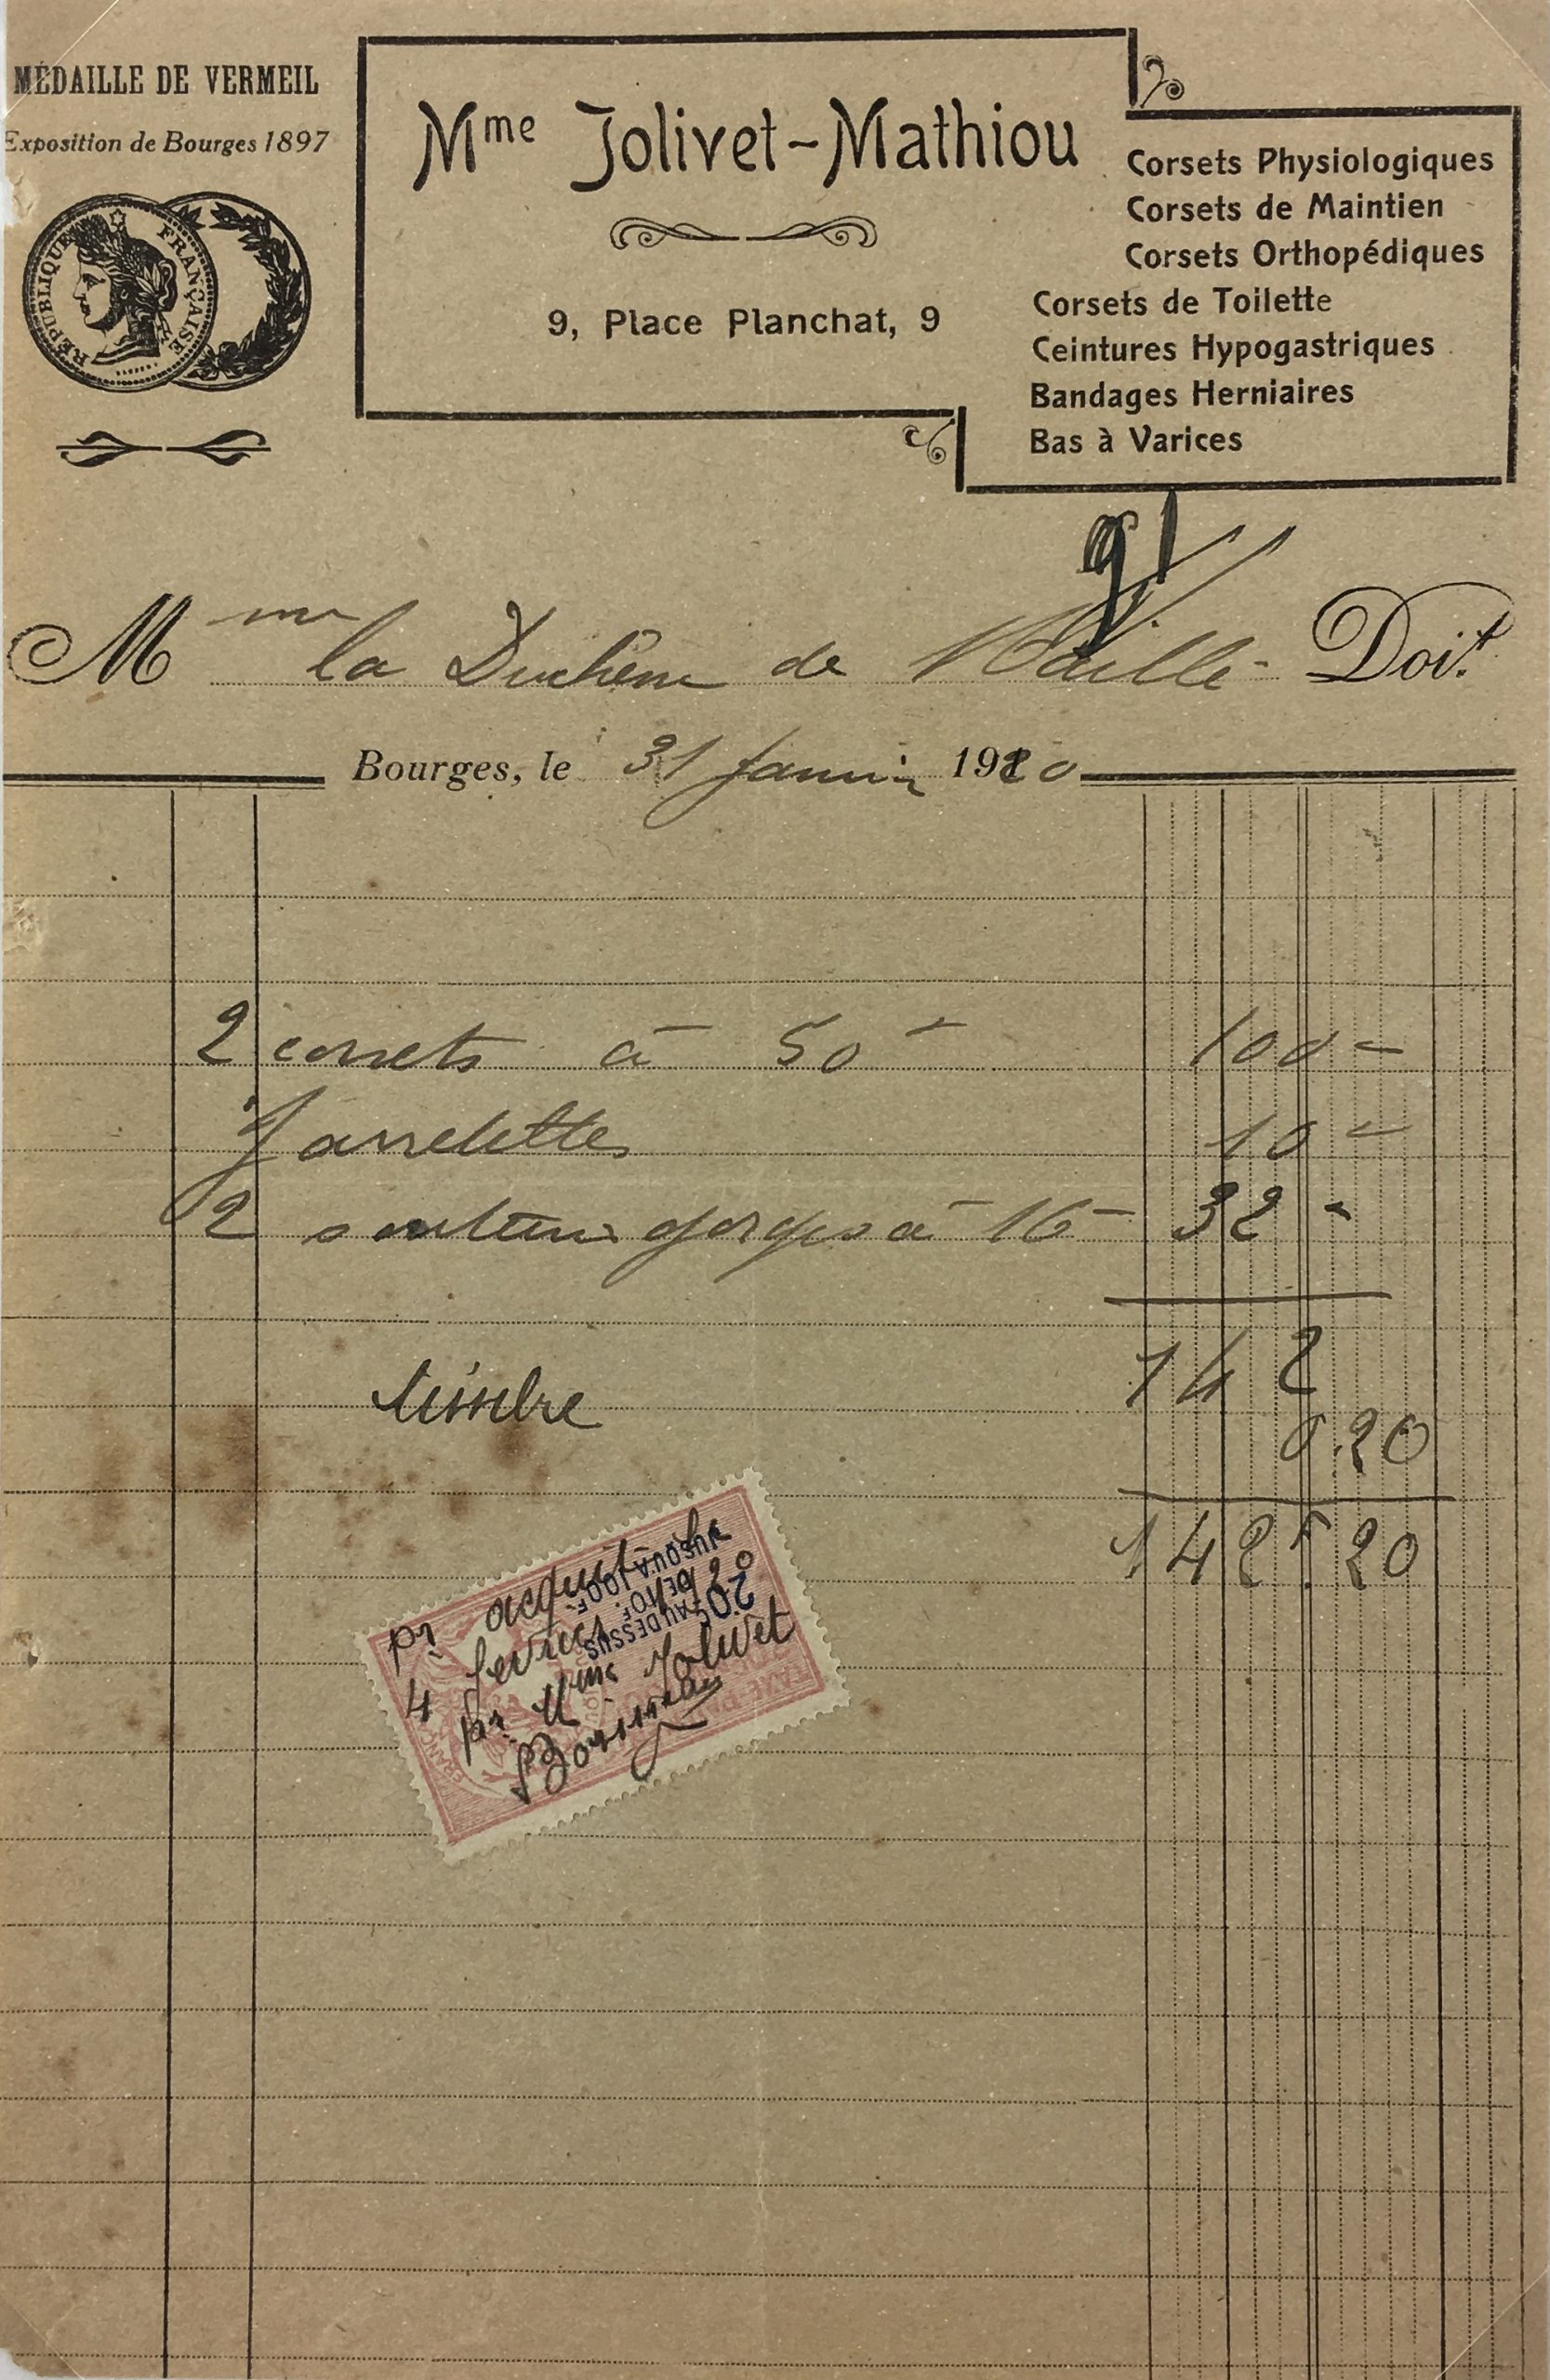 MÉDAILLE DE VERMEIL
Exposition de Bourges 1897
RÉPUBLIQUE FRANÇAISE
Mme Jolivet-Mathiou
9, Place Planchat, 9
Corsets Physiologiques
Corsets de Maintien
Corsets Orthopédiques
Corsets de Toilette
Ceintures Hypogastriques
Bandages Herniaires
Bas à Varices
91
Mme la Duchesse de Maillé Doit
Bourges, le 31 Janvier 1920
2 corsets à 50 - 100 -
Jarretelles 10 -
2 soutiens gorges à 16 - 32 -
142
timbre 0.20
142 f 20
20c
AU DESSUS
DE 10F
JUSQU'A 100F
pr acquit le
4 fevrier 1920
pr Mme Jolivet